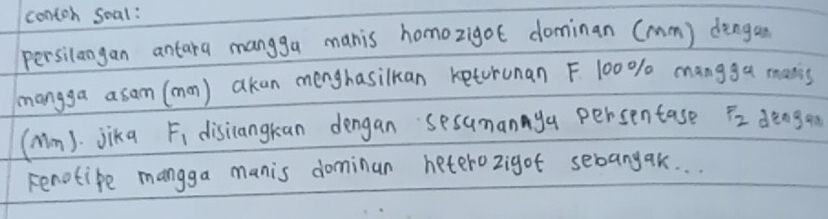 contoh soal:
Persilangan antara mangga manis homozigot dominan (Mm) dengan
mangga asam (mm) akan menghasilkan keturunan F. 100% mangga manis
(Mm). Jika F1 disilangkan dengan sesamannya persentase F2 dengan
Fenotipe mangga manis dominan heterozigot sebanyak...